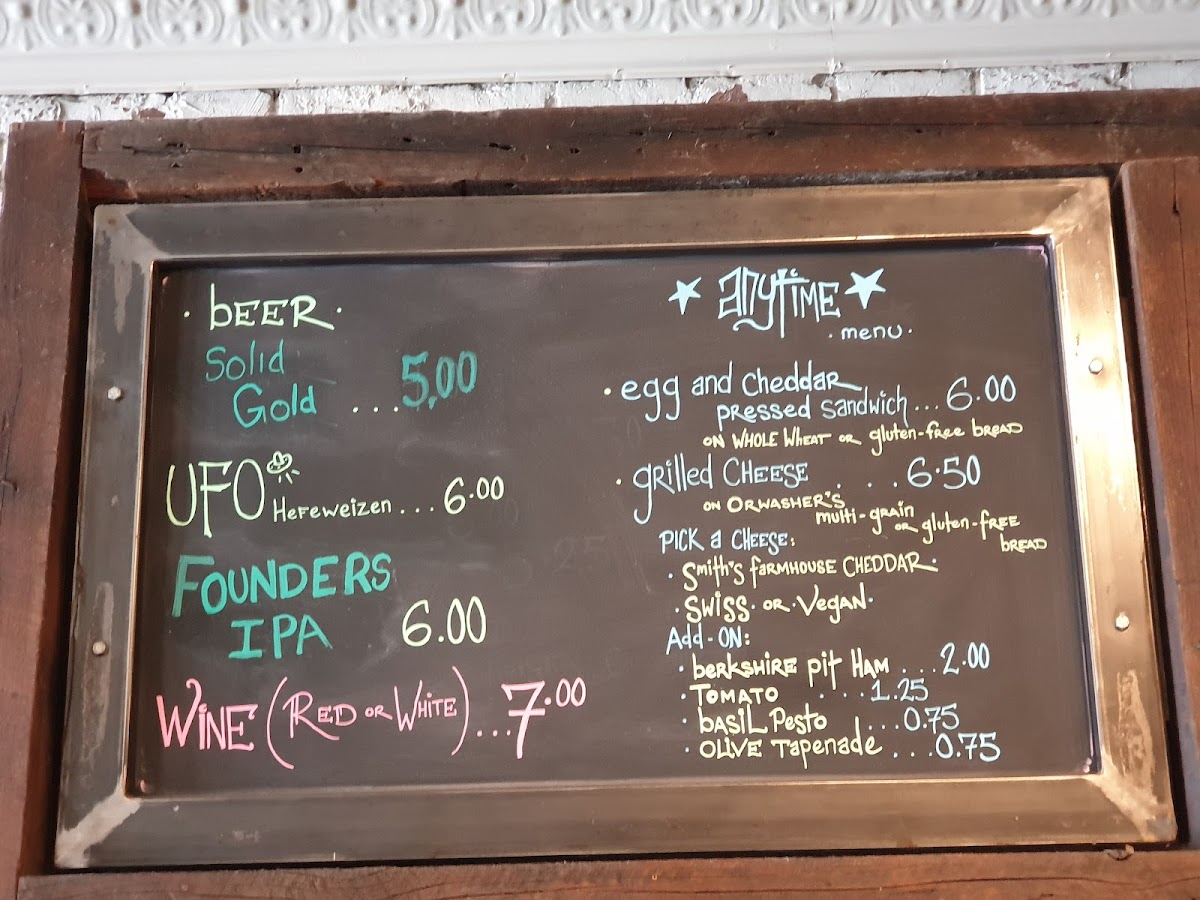 · bEER ·
Solid
Gold ... 5.00
UFO Hefeweizen ... 6.00
FOUNDERS
IPA 6.00
WINE (RED OR WHITE) ... 7.00
ANYTIME
· menu ·
· egg and cheddar
pressed sandwich ... 6.00
ON WHOLE WHEAT OR gluten-free BREAD
· grilled CHEESE . . . . 6.50
ON ORWASHER'S
multi-grain
OR gluten-FREE
BREAD
PICK a CHEESE:
· Smith's FARMHOUSE CHEDDAR ·
· SWISS · OR · Vegan ·
Add-ON:
· berkshire pit HAM ... 2.00
· TOMATO .... 1.25
· basil Pesto ... 0.75
· OLIVE Tapenade ... 0.75